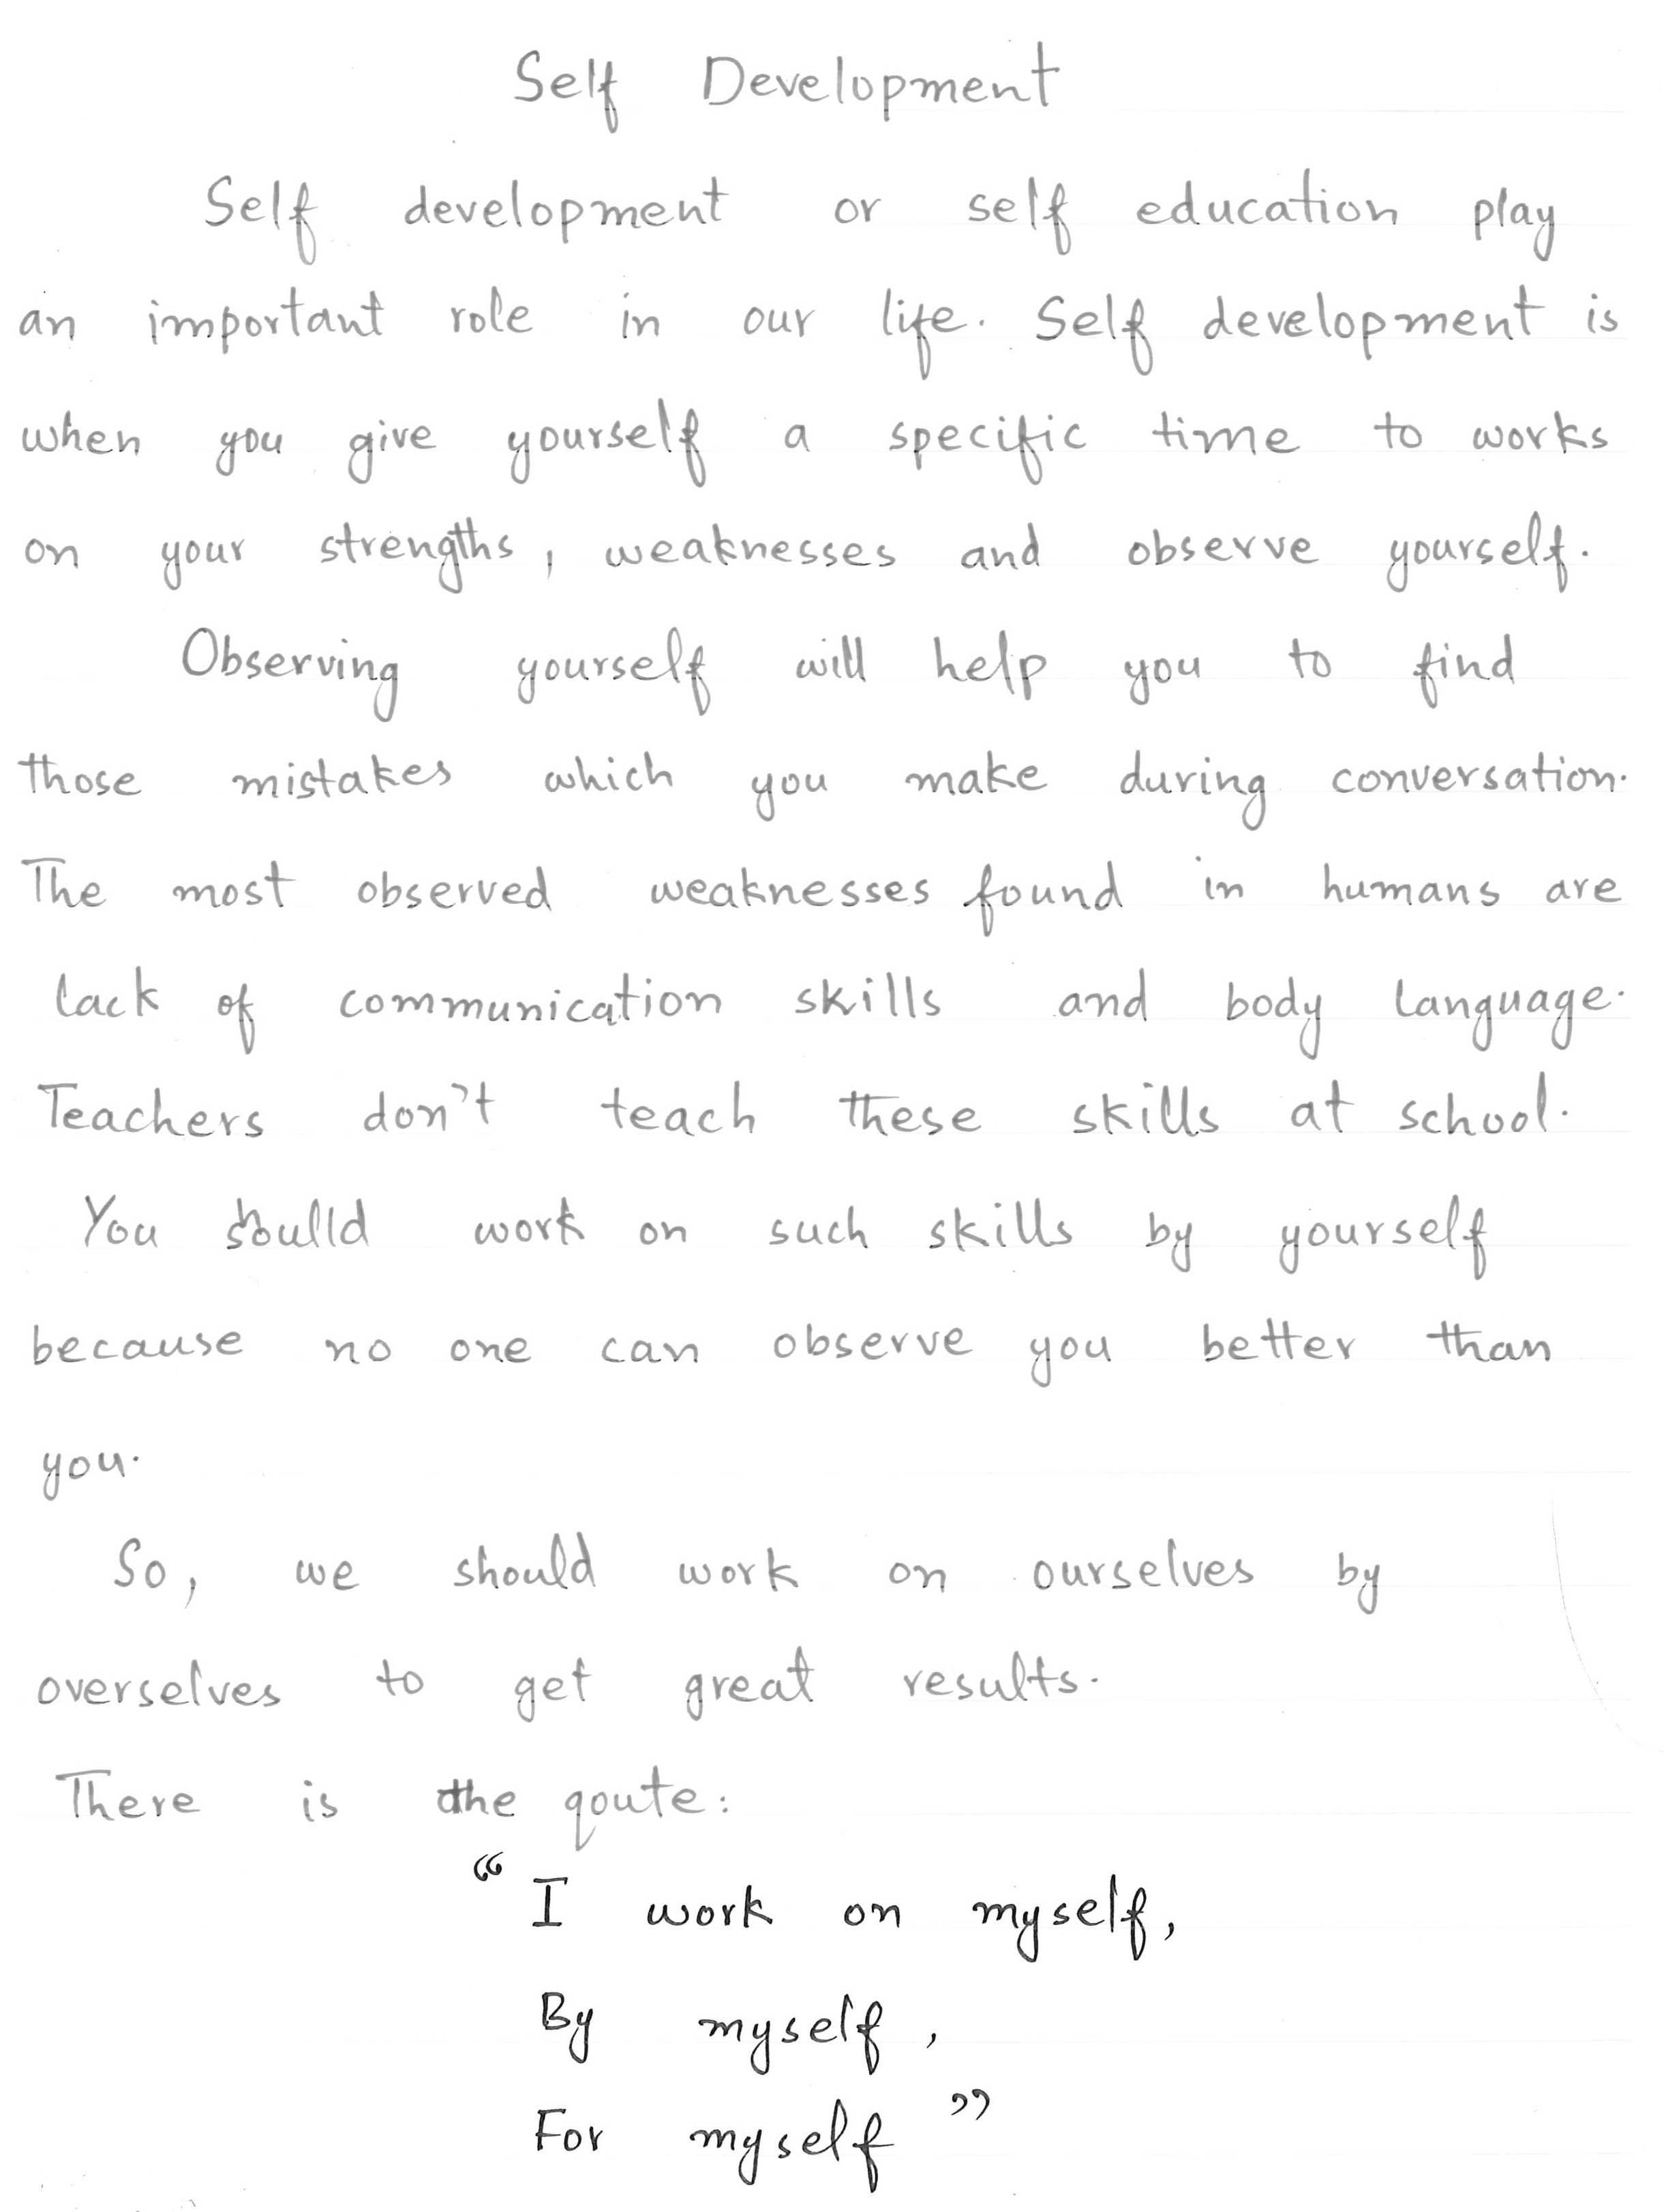 Self Development
Self development or self education play
an important role in our life. Self development is
when you give yourself a specific time to works
on your strengths, weaknesses and observe yourself.
Observing yourself will help you to find
those mistakes which you make during conversation.
The most observed weaknesses found in humans are
lack of communication skills and body language.
Teachers don't teach these skills at school.
You shoulld work on such skills by yourself
because no one can observe you better than
you.
So, we should work on ourselves by
overselves to get great results.
There is the qoute:
“I work on myself,
By myself,
For myself”